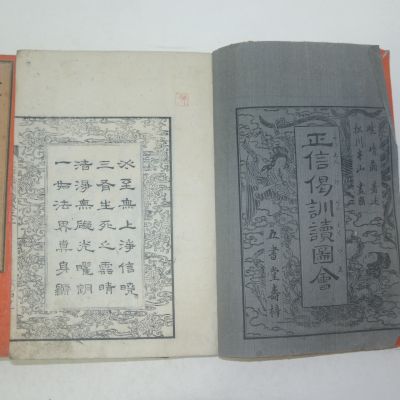 正信偈訓讀圖會
松川半山畫圖
五書堂壽梓
必至無上淨信曉
三有生死之雲晴
清淨無礙光曜朗
一如法界真身顯